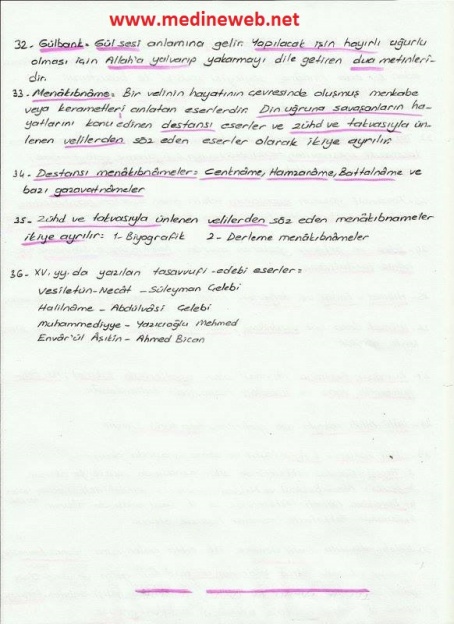 www.medineweb.net
32- Gülbank= Gül sesi anlamına gelir. Yapılacak işin hayırlı uğurlu
olması için Allah'a yalvarıp yakarmayı dile getiren dua metinleri-
dir.
33- Menâkıbnâme= Bir velinin hayatının çevresinde oluşmuş menkabe
veya kerametleri anlatan eserlerdir. Din uğruna savaşanların ha-
yatlarını konu edinen destansı eserler ve zühd ve takvasıyla ün-
lenen velilerden söz eden eserler olarak ikiye ayrılır.
34- Destansı menâkıbnâmeler= Cenknâme, Hamzanâme, Battalnâme ve
bazı gazavatnâmeler
35- Zühd ve takvasıyla ünlenen velilerden söz eden menâkıbnameler
ikiye ayrılır= 1- Biyografik 2- Derleme menâkıbnâmeler
36- XV. yy. da yazılan tasavvufi-edebi eserler=
Vesiletün-Necât - Süleyman Çelebi
Halilnâme - Abdülvâsi Çelebi
Muhammediyye - Yazıcıoğlu Mehmed
Envâr'ül Âşıkîn - Ahmed Bican